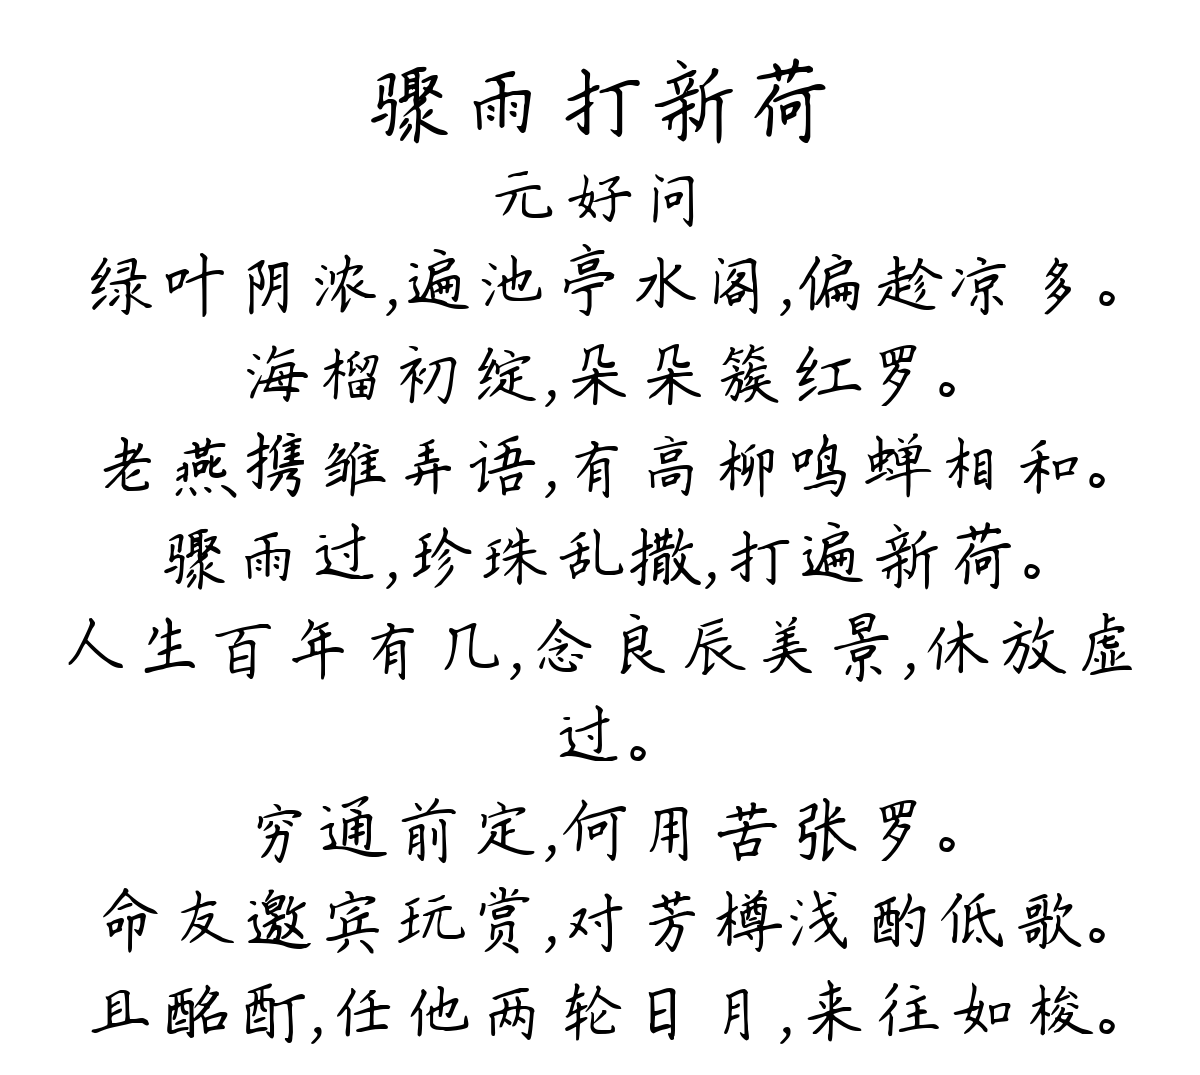 骤雨打新荷
元好问
绿叶阴浓,遍池亭水阁,偏趁凉多。
海榴初绽,朵朵簇红罗。
老燕携雏弄语,有高柳鸣蝉相和。
骤雨过,珍珠乱撒,打遍新荷。
人生百年有几,念良辰美景,休放虚
过。
穷通前定,何用苦张罗。
命友邀宾玩赏,对芳樽浅酌低歌。
且酩酊,任他两轮日月,来往如梭。